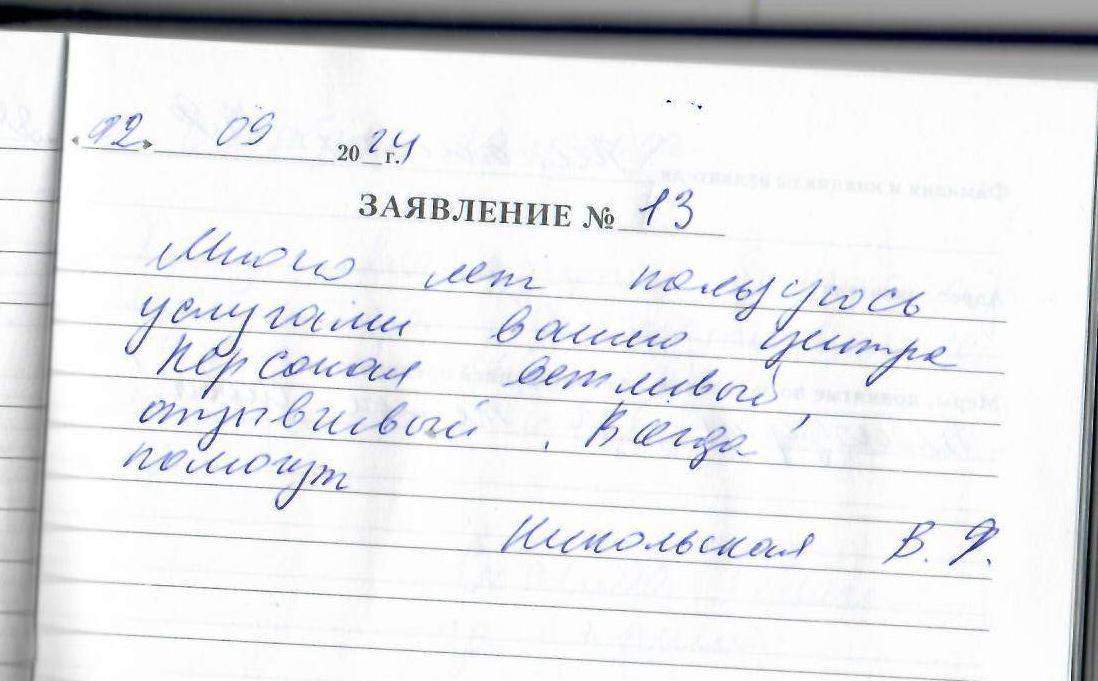 «12» 09 2024 г.
ЗАЯВЛЕНИЕ № 13
Много лет пользуюсь
услугами вашего центра
Персонал вежливый,
отзывчивый. Всегда
помогут
Никольская В. Ф.